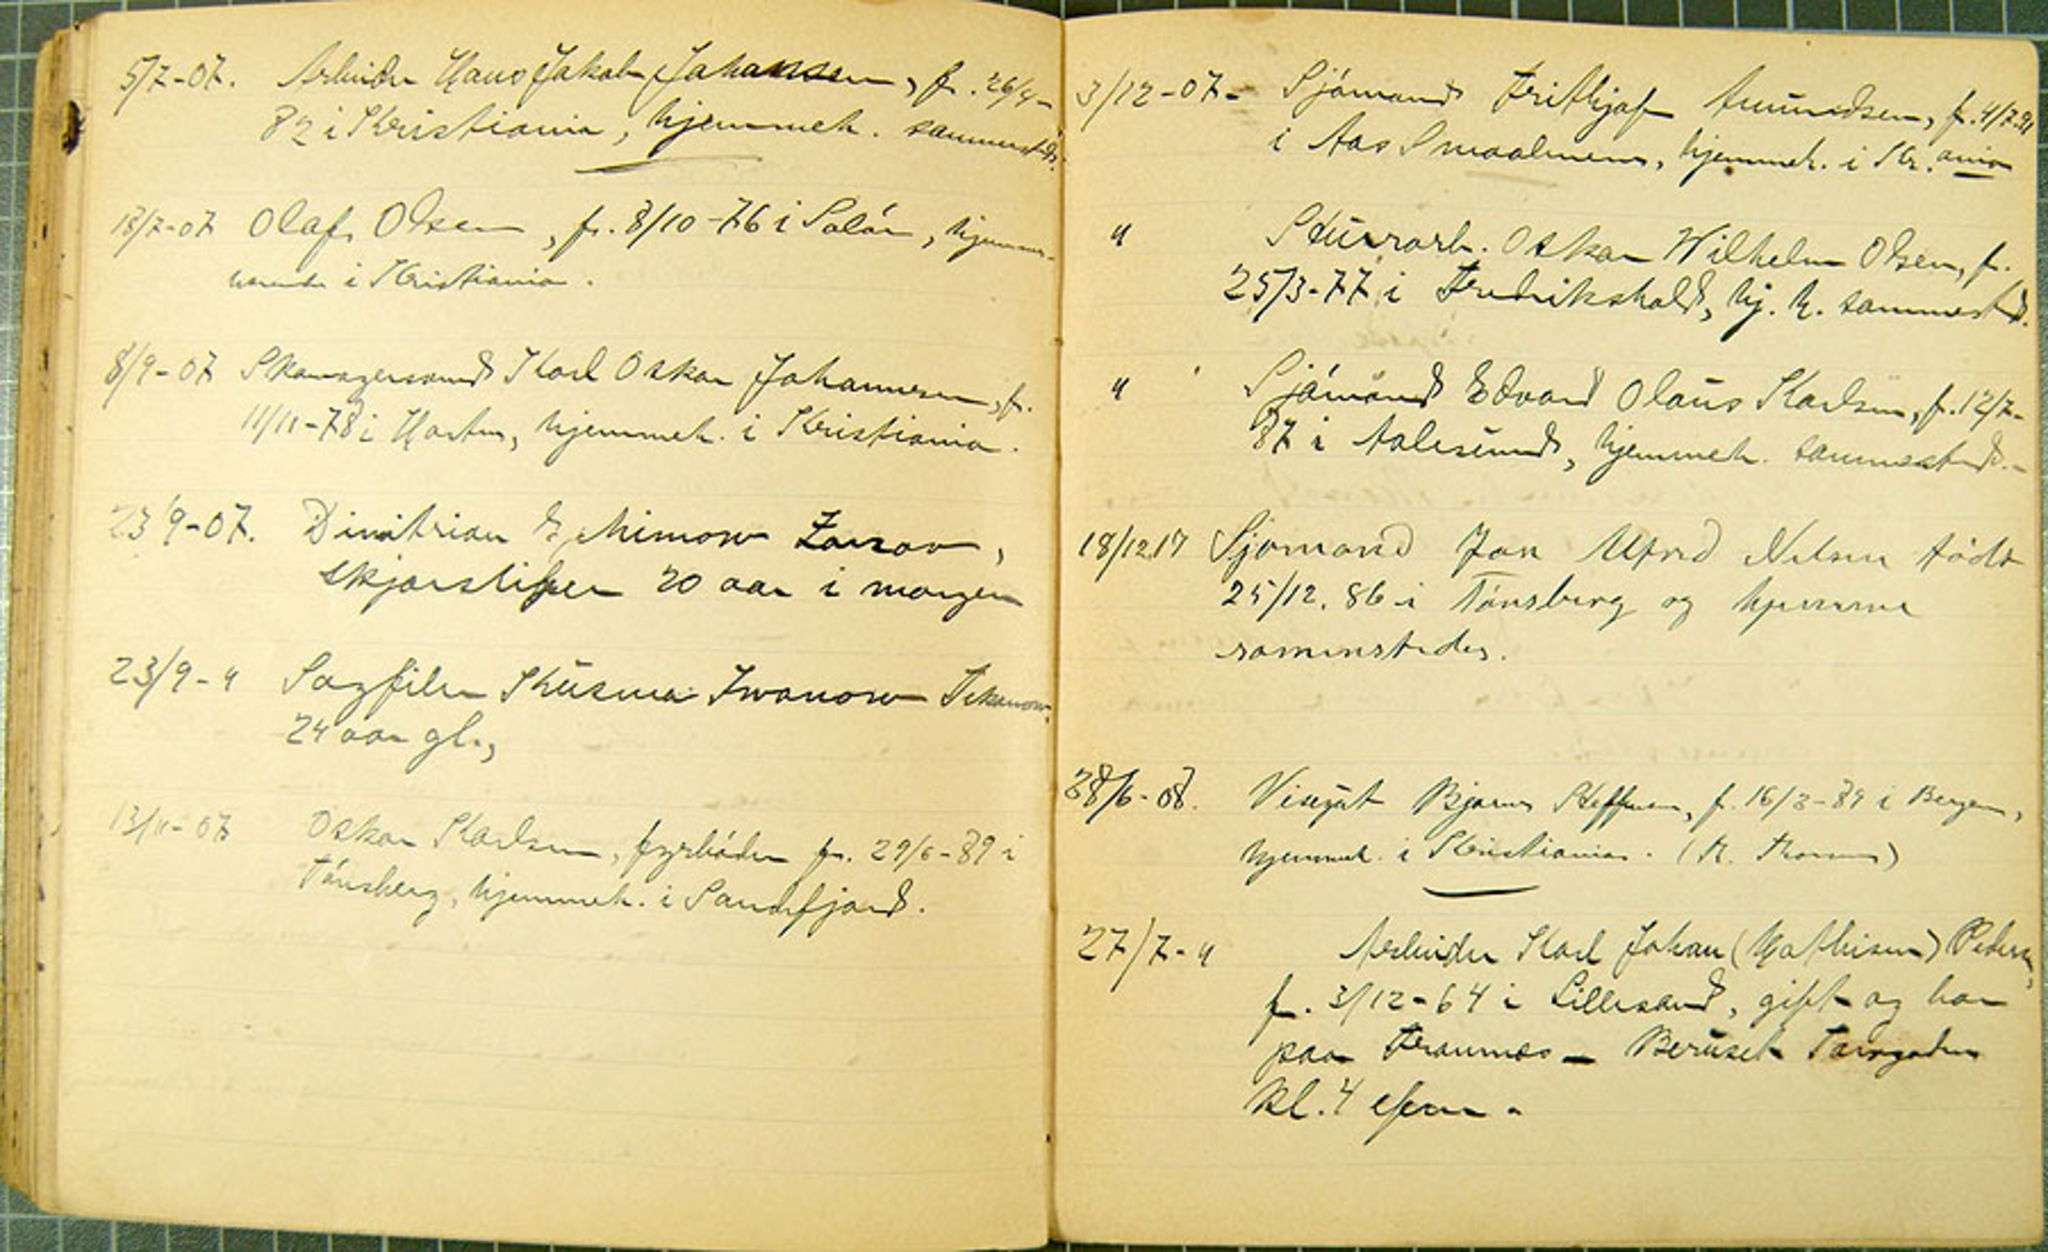 5/7-07. Arbeider Hans Jakob Johansen, f. 26/4-
82 i Kristiania, hjemmeh. sammesteds.
18/7-07 Olaf Olsen, f. 8/10-76 i Solör, hjemme-
hörende i Kristiania.
8/9-07 Skomagersvend Karl Oskar Johannesen, f.
11/11-78 i Horten, hjemmeh. i Kristiania.
23/9-07. Dimitrian
20 aar i morgen
23/9-" Sagfiler Kusma Iwanow
24 aar gl.,
13/11-07 Oskar Karlsen, fyrböder f. 29/6-89 i
Tönsberg, hjemmeh. i Sandefjord.
3/12-07- Sjömand Frithjof Amundsen, f. 4/7.91
i Aas Smaalenene, hjemmeh. i Kr.ania
" Oskar Wilhelm Olsen, f.
25/3-77 i Fredrikshald, hj. h. sammesteds.
" Sjömand Edvard Olaus Karlsen, f. 12/7-
87 i Aalesund, hjemmeh. sammesteds.-
18/12.17 Sjömand Jon Alfred Nelsen födt
25/12.86 i Tönsberg og hjemme
sammenstedes.
28/6-08. Visergut Bjarne Steffensen, f. 16/3-89 i Bergen,
hjemmeh. i Kristiania.
27/7-" Arbeider Karl Johan (Mathisen) Pedersen,
f. 3/12-64 i Lillesand, gift og bor
paa Framnæs - Beruset Torvgaden
kl. 4 efterm.